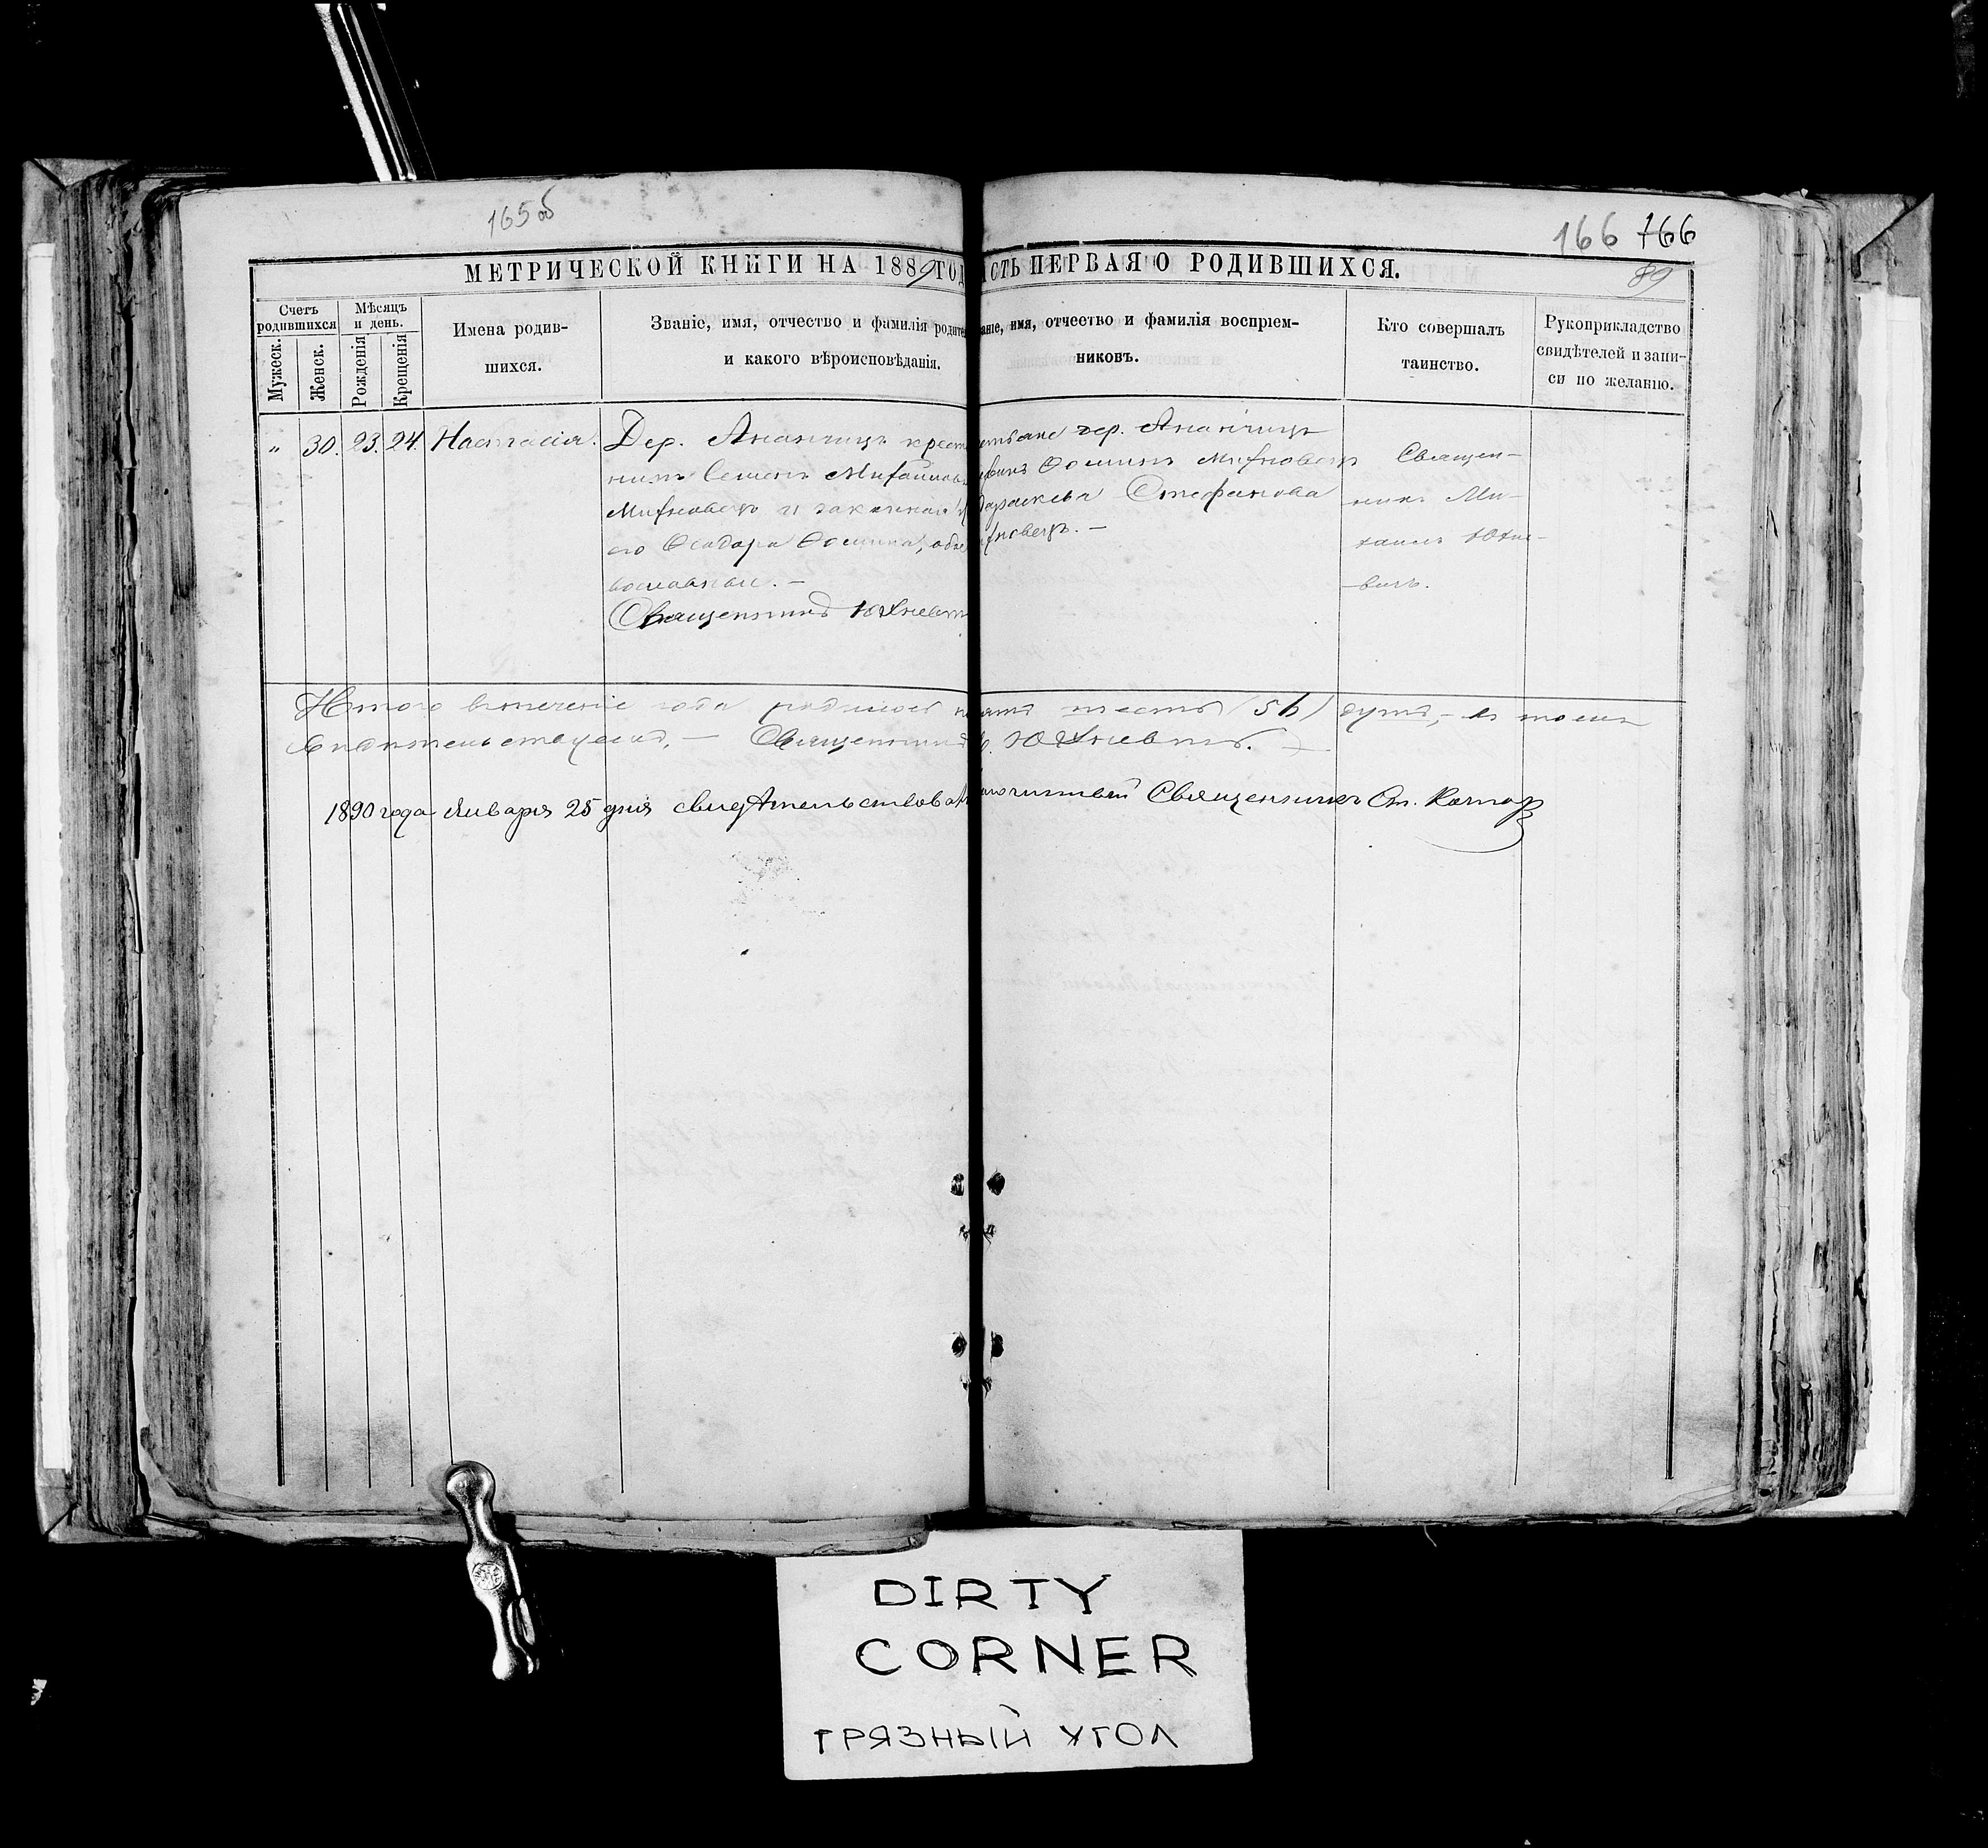 165 об
166 166
89
МЕТРИЧЕСКОЙ КНИГИ НА 1889 ГОД
СТЬ ПЕРВАЯ О РОДИВШИХСЯ.
Счетъ родившихся
Мужеск.
Женск.
Мѣсяцъ и день.
Рожденія
Крещенія
Имена родив-
шихся.
Званіе, имя, отчество и фамилія родите
и какого вѣроисповѣданія.
аніе, имя, отчество и фамилія воспріем-
никовъ.
Кто совершалъ
таинство.
Рукоприкладство
свидѣтелей и запи-
си по желанію.
„ 30. 23. 24. Настасія.
Дер. Ананчицъ крест
нинъ Семенъ Михайловъ
Михновецъ и законная
его Ѳеодора Ѳомина, обое
вославные. —
Священникъ Юхневич
дер. Ананчицъ
Ѳоминъ Михновецъ
Параскева Стефанова
хновецъ. —
Священ-
никъ Ми-
хаилъ Юхне-
вичъ.
Итого втеченіе года родилось шесть (56) душъ, — въ томъ
свидѣтельствуемъ, — Священникъ Юхневичъ.
1890 года Января 25 дня свидѣтельствовалъ Священникъ Ст.
DIRTY
CORNER
ГРЯЗНЫЙ УГОЛ